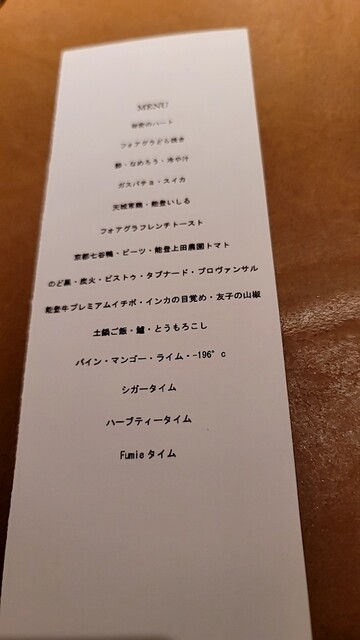 MENU
秘密のハート
フォアグラども焼き
鯵・なめろう・冷や汁
ガスパチョ・スイカ
天城軍鶏・能登いしる
フォアグラフレンチトースト
京都七谷鴨・ビーツ・能登上田農園トマト
のど黒・炭火・ピストゥ・タプナード・プロヴァンサル
能登牛プレミアムイチボ・インカの目覚め・友子の山椒
土鍋ご飯・鱧・とうもろこし
パイン・マンゴー・ライム・-196°c
シガータイム
ハーブティータイム
Fumieタイム